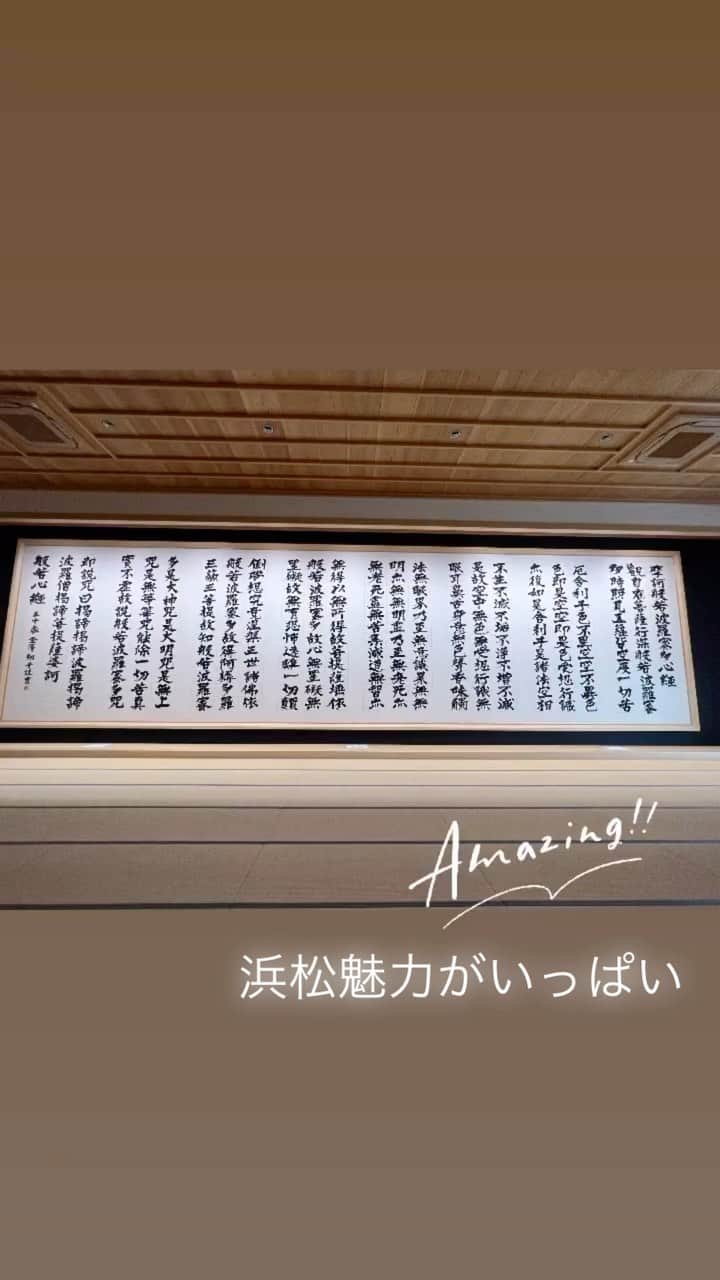 摩訶般若波羅蜜多心経
觀自在菩薩行深般若波羅蜜
多時照見五蘊皆空度一切苦
厄舎利子色不異空空不異色
色即是空空即是色受想行識
亦復如是舎利子是諸法空相
不生不滅不垢不浄不増不減
是故空中無色無受想行識無
眼耳鼻舌身意無色聲香味觸
法無眼界乃至無意識界無無
明亦無無明盡乃至無老死亦
無老死盡無苦集滅道無智亦
無得以無所得故菩提薩埵依
般若波羅蜜多故心無罣礙無
罣礙故無有恐怖遠離一切顛
倒夢想究竟涅槃三世諸佛依
般若波羅蜜多故得阿耨多羅
三藐三菩提故知般若波羅蜜
多是大神咒是大明咒是無上
咒是無等等咒能除一切苦真
實不虚故説般若波羅蜜多咒
即説咒曰掲諦掲諦波羅掲諦
波羅僧掲諦菩提薩婆訶
般若心経
Amazing!!
浜松魅力がいっぱい